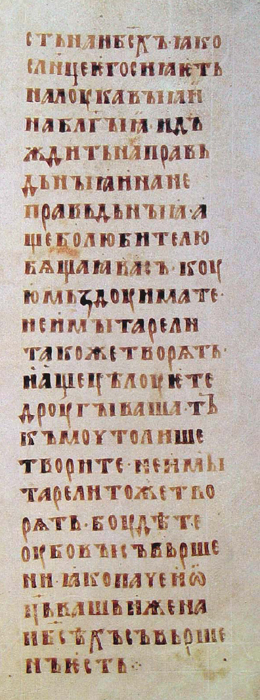 стьнанбсхъ· ꙗко
слн҃цеѥгосиꙗѥть
налоукавыꙗи
наблг҃ыꙗ· идъ
ждитьнаправь
дьныꙗинане
правьдьныꙗ· а
щеболюбителю
бѧщаꙗвасъ· коую
мьздоуимате·
неимытарели
такожетворѧть·
нащецѣлоуѥте
дроугываша· тъ
къмоутолише
творите· неимы
тарелитожетво
рѧть· боудѣте
оубовысъвьрше
ни· ꙗконаченѡ
цьвашьижена
нбс҃ѣхъсъвьрше
нъѥсть·